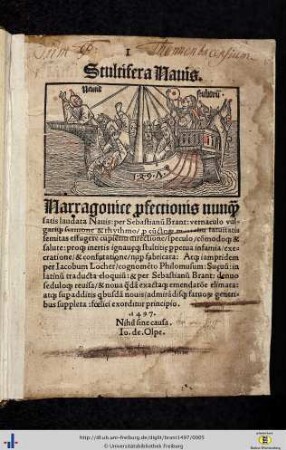 I
Stultifera Nauis.
Narragonice ꝓfectionis nunꝗ̃
satis laudata Nauis: per Sebastianũ Brant: vernaculo vul-
gariq; sermone & rhythmo/ ꝓ cũctoꝝ mortaliũ fatuitatis
semitas effugere cupientiũ directione/ speculo/ cõmodoq; &
salute: proq; inertis ignaueq; stultitiȩ ꝑpetua infamia/ exe-
cratione/ & confutatione/ nuꝑ fabricata: Atq; iampridem
per Iacobum Locher/ cognomẽto Philomusum: Sueuũ: in
latinũ traducta eloquiũ: & per Sebastianũ Brant: denuo
seduloq; reuisa/
fœlici exorditur principio.
.1497.
Nihil sine causa.
Io. de. Olpe.
http://dl.ub.uni-freiburg.de/diglit/brant1497/0005
© Universitätsbibliothek Freiburg